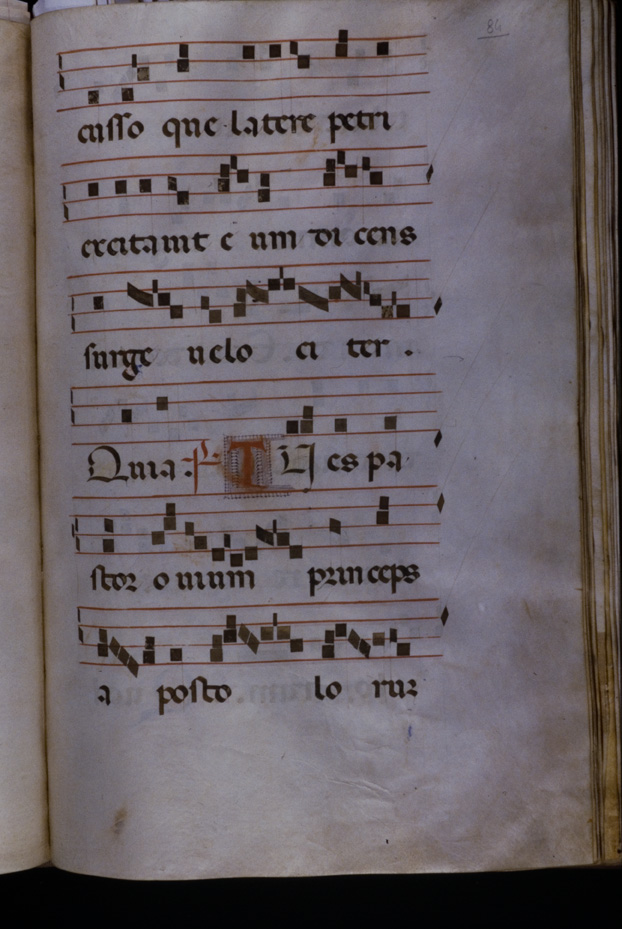 84
cusso que latere petri
excitauit e um di cens
surge uelo ci ter .
Quia : ℟ TU es pa
stor ouium princeps
a posto lo rum